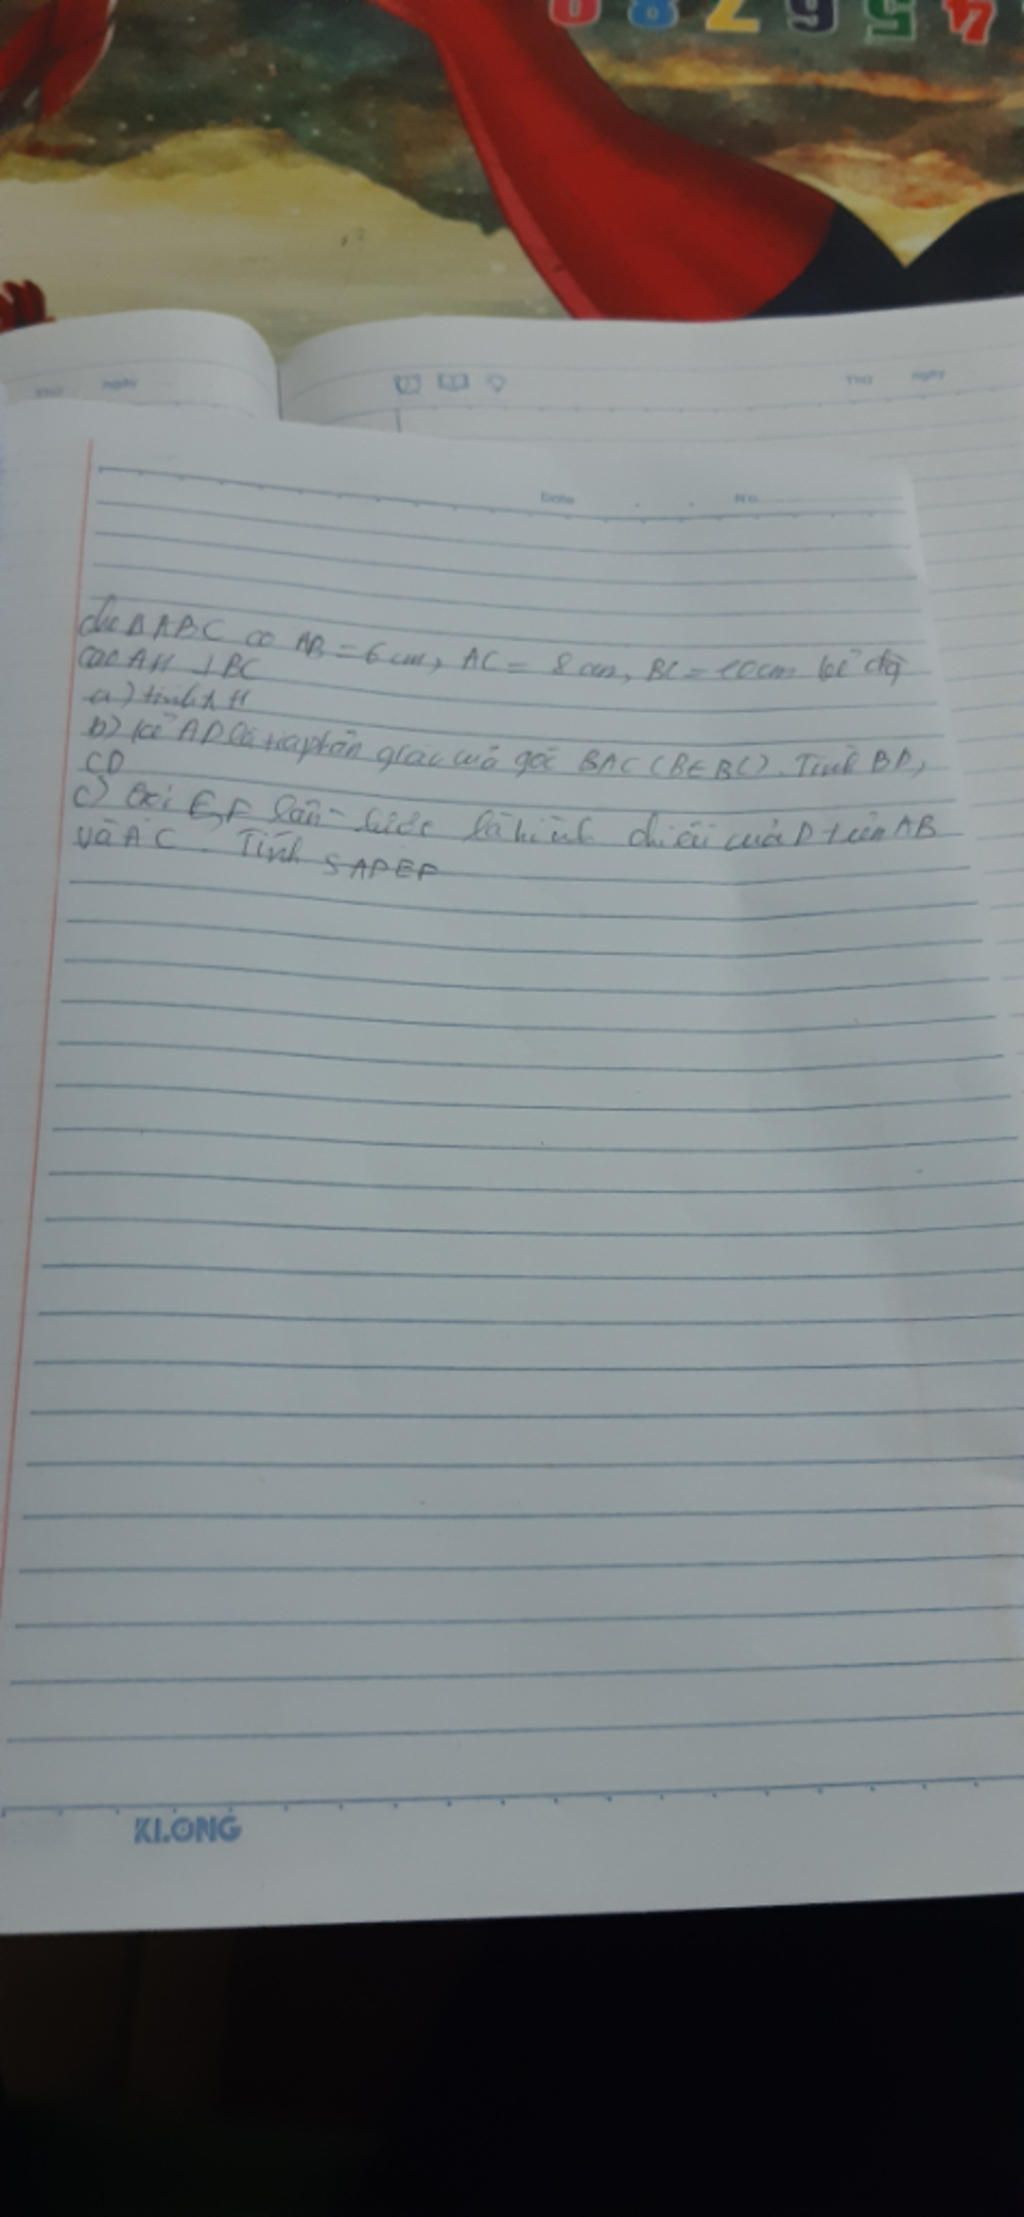 0 8 7 6 5 4
Thứ ngày
Thứ ngày
Date . . No
cho ΔABC có AB = 6 cm, AC = 8 cm, BC = 10cm kẻ đg
cao AH ⊥ BC
a) tính AH
b) kẻ AD là tia phân giác của góc BAC (BEBC). Tính BD,
CD
c) Gọi E, F lần lượt là hình chiếu của D trên AB
và AC. Tính SAPEF
KLONG